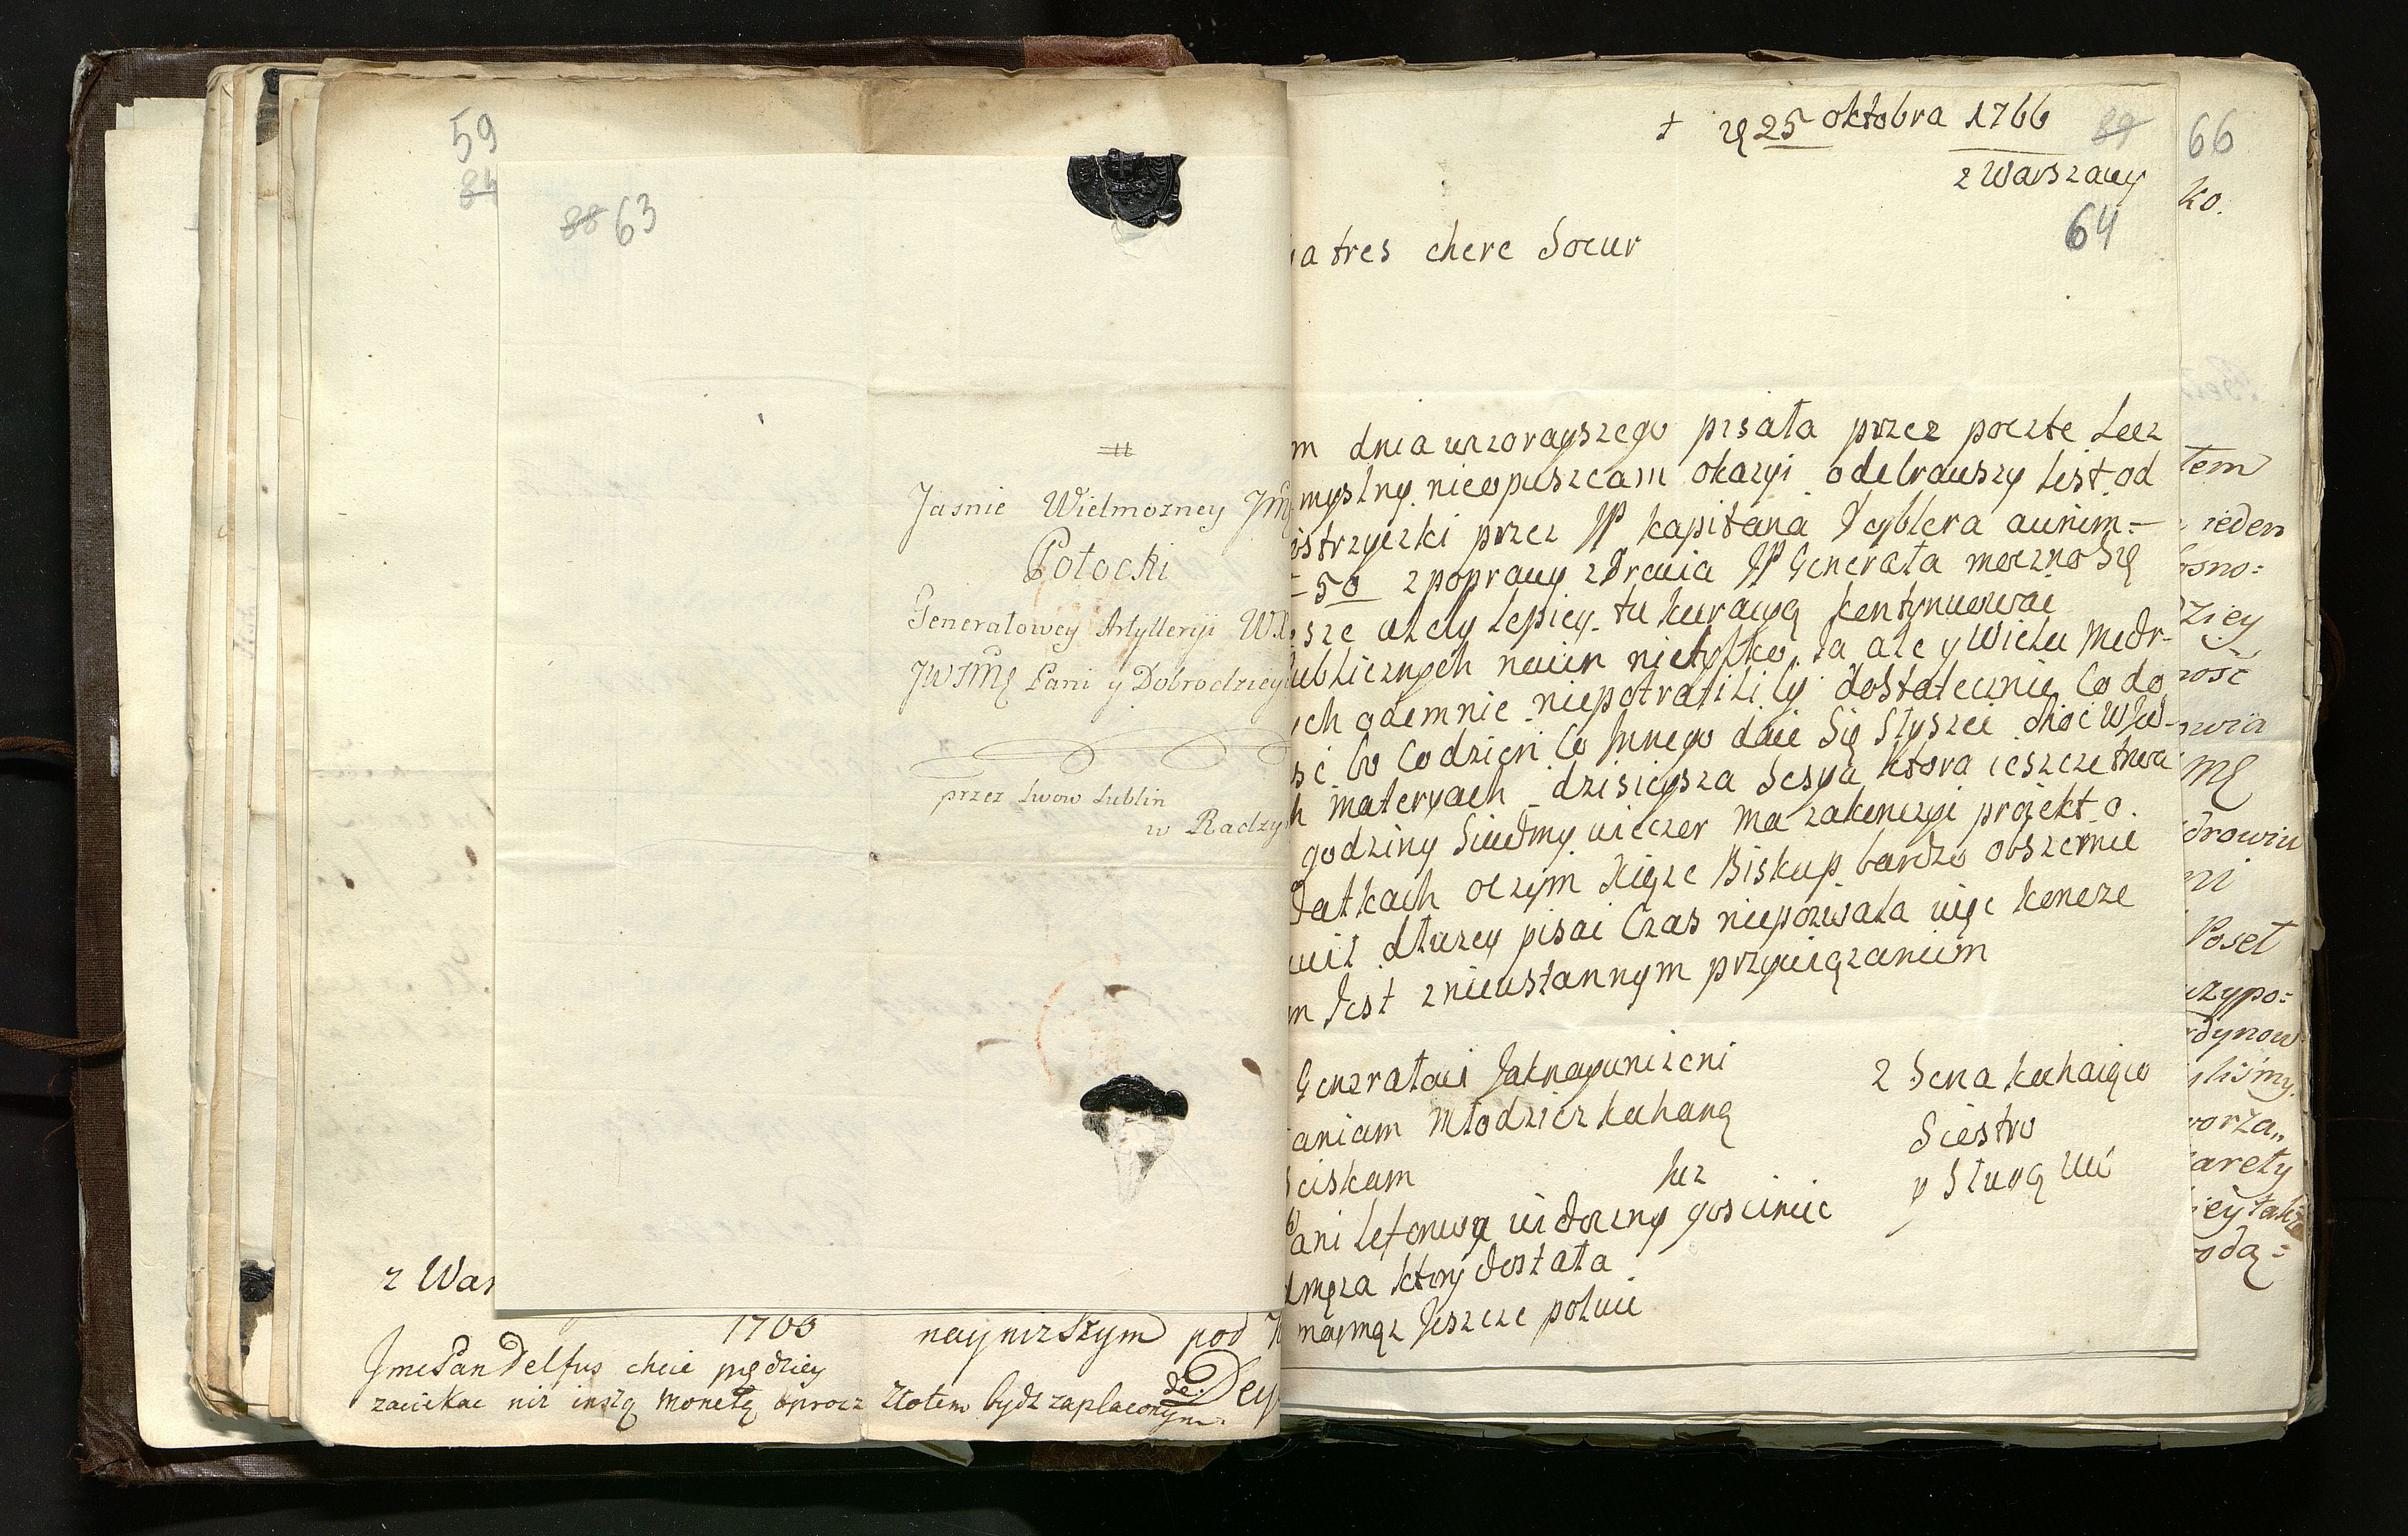 59
84
88 63
Jasnie Wielmozney
Potocki
Generałowey Artylleryi
Pani y Dobrodzieyce
przez Lwow Lublin
w Radzy
z War
1763
nayniższym pod
JmcPan Delfus chce prędziey
zaczekac niż inszą monetą oprocz Złotem bydz zapłaconym.
de Dey
25 oktobra 1766
89
66
z Warszawy
64
a tres chere Soeur
m dnia wczorayszego pisała przez poczte Lecz
myslny nieopuszczam okazyi odebrawszy List od
strzyczki przez JP kapitana
50 z poprawy zdrowia JP Generała moczno Się
sze azeby Lepiey tu kuracyą kontynuowac
ublicznych nowin nietylko Ja ale y Wielu Mędr-
ych odemnie niepotrafiliby dostatecznie Co do
sc bo Codzien Co Jnnego daie Się Słyszec choc w
h materyach dzisieysza Sesya ktora ieszcze trwa
godziny Siudmy wieczor ma zakonczyc projekt o
datkach oczym Xiąze Biskup bardzo obszernie
wił dłuzey pisac Czas niepozwala więc koncze
m Jest z nieustannym przywiązaniem
Generałowi Jaknayunizeni
aniam Młodziez kochaną
sciskam
ani Lefonową widoczny gosciniec
męza ktory dostała
maymąz Jeszcze połowe
z Serca kochaiąco
Siestro
y Sługą
ko.
tem
ieden
osno=
ziey
nosc
owia
drowiu
ni
Poseł
uzypo=
dynow
liśmy
worza,,
arety
iey tak
odą=